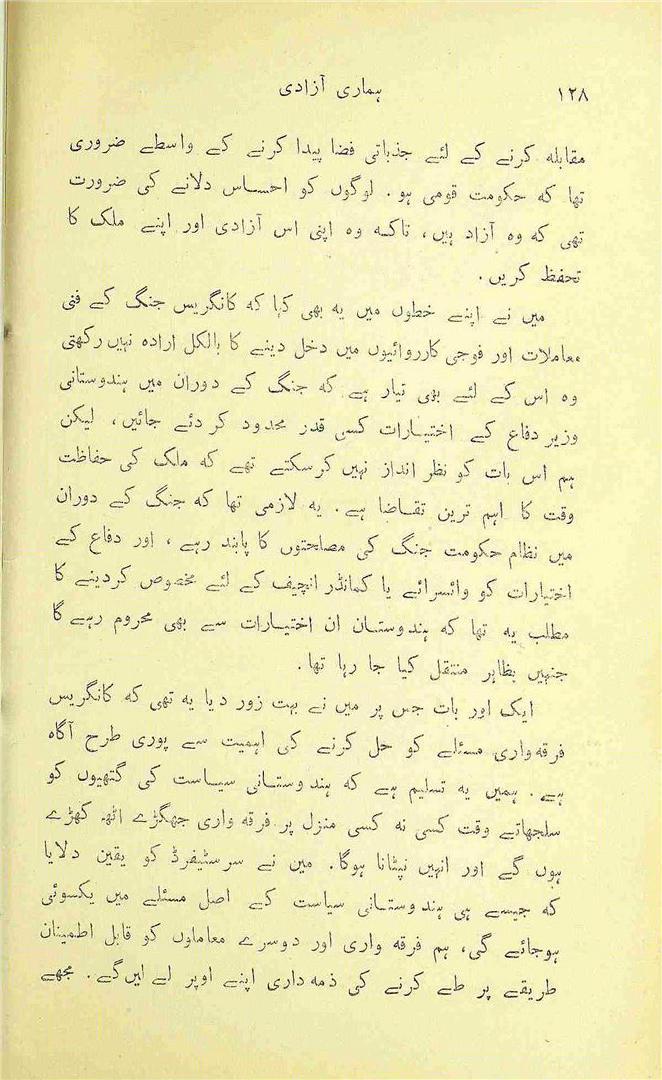 ۱۲۸ ہماری آزادی
مقابلہ کرنے کے لئے جذباتی فضا پیدا کرنے کے واسطے ضروری
تھا کہ حکومت قومی ہو۔ لوگوں کو احساس دلانے کی ضرورت
تھی کہ وہ آزاد ہیں، تاکہ وہ اپنی اس آزادی اور اپنے ملک کا
تحفظ کریں۔
میں نے اپنے خطوں میں یہ بھی کہا کہ کانگریس جنگ کے فنی
معاملات اور فوجی کارروائیوں میں دخل دینے کا بالکل ارادہ نہیں رکھتی
وہ اس کے لئے بھی تیار ہے کہ جنگ کے دوران میں ہندوستانی
وزیر دفاع کے اختیارات کسی قدر محدود کر دئے جائیں، لیکن
ہم اس بات کو نظر انداز نہیں کرسکتے تھے کہ ملک کی حفاظت
وقت کا اہم ترین تقاضا ہے۔ یہ لازمی تھا کہ جنگ کے دوران
میں نظام حکومت جنگ کی مصلحتوں کا پابند رہے، اور دفاع کے
اختیارات کو وائسرائے یا کمانڈر انچیف کے لئے مخصوص کردینے کا
مطلب یہ تھا کہ ہندوستان ان اختیارات سے بھی محروم رہے گا
جنہیں بظاہر منتقل کیا جا رہا تھا۔
ایک اور بات جس پر میں نے بہت زور دیا یہ تھی کہ کانگریس
فرقہ واری مسئلے کو حل کرنے کی اہمیت سے پوری طرح آگاہ
ہے۔ ہمیں یہ تسلیم ہے کہ ہندوستانی سیاست کی گتھیوں کو
سلجھاتے وقت کسی نہ کسی منزل پر فرقہ واری جھگڑے اٹھ کھڑے
ہوں گے اور انہیں نپٹانا ہوگا۔ مین نے سر سٹیفرڈ کو یقین دلایا
کہ جیسے ہی ہندوستانی سیاست کے اصل مسئلے میں یکسوئی
ہوجائے گی، ہم فرقہ واری اور دوسرے معاملوں کو قابل اطمینان
طریقے پر طے کرنے کی ذمہ داری اپنے اوپر لے لیں گے۔ مجھے